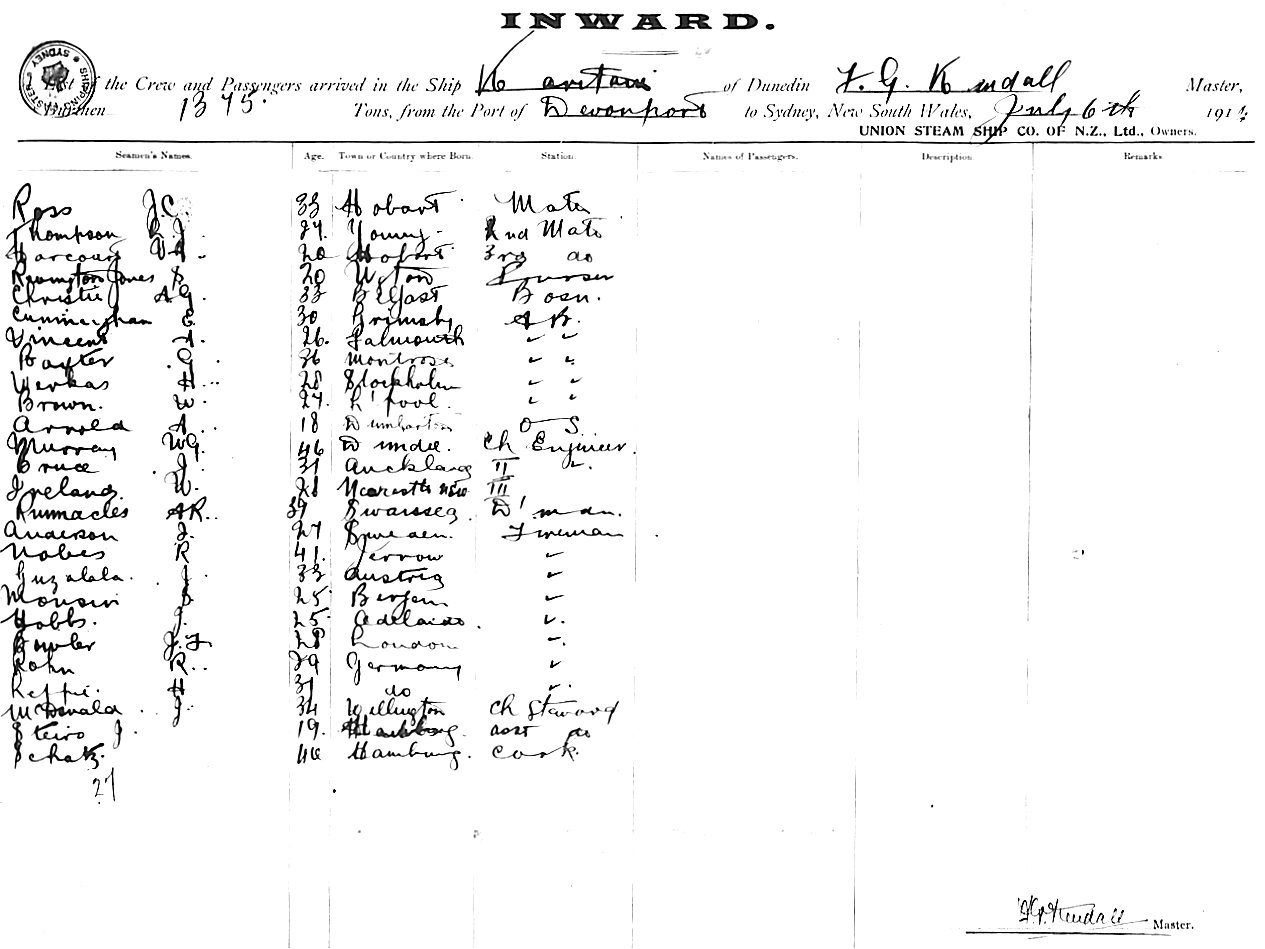 INWARD.
of the Crew and Passengers arrived in the Ship Karitane of Dunedin F. G. Kendall Master,
Burthen 1375. Tons, from the Port of Devonport to Sydney, New South Wales, July 6th 1914
UNION STEAM SHIP CO. OF N.Z., Ltd., Owners.
Seamen's Names. Age. Town or Country where Born. Station. Names of Passengers. Description Remarks.
Ross J.C. 33 Hobart Mate
Thompson J. 27. Young 2nd Mate
Harcourt 20 Hobart 3rd do
Jones S 20 Purser
Christie A G. 33 Belfast Bosn.
Cunningham E. 30 Grimsby A B.
Vincent A. 26. Falmouth " "
Baxter G 36 Montrose " "
Werkas H 28 Stockholm " "
Brown. W. 27. L'pool. " "
Arnold A. 18 Dumbarton O S.
Murray W G. 46 Dundee. Ch Engineer.
Bruce J. 31 Auckland II "
Ireland. W. 28 Newcastle NSW III
Runnacles A R.. 39 Swansea D'man.
Anderson J. 27 Sweden. Fireman
Nobes R 41. Jerrow "
Guzalala. J. 33 Austria "
Monsin S. 25 Bergen "
Hobbs. J. 25 Adelaide. "
Bowler J. F. 28 London "
Rohn R.. 29 Germany "
H 31 do "
McDonald J. 34 Wellington Ch Steward
Steiro J. 19. Hamburg. asst do
Schatz. 46 Hamburg. Cook.
27
F. G. Kendall Master.